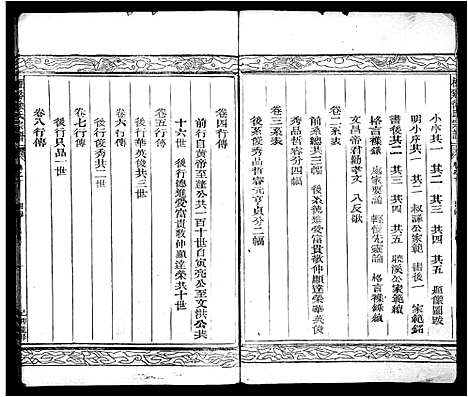 小序其一 其二 其三 其四 其五 題像圖跋
明小序其一 其二 叔謙公家範 書後一 家範銘
書後其二 其三 其四 其五 聽溪公家範
格言襍錄 處家要論 輕便先靈論 格言襍錄續
文昌帝君勸孝文 八反歌
卷二系表
前系總共三幅 後系德進愛富貴敬仲顯達榮華英俊
秀品哲睿元亨貞分四幅
卷三系表
後系俊秀品哲睿元亨貞分二幅
卷四行傳
前行自黃帝至蓬公共一百十世自寅亮公至文洪公共
十六世 後行德進愛富貴敬仲顯達榮共十世
卷五行傳
後行華英俊共三世
卷六行傳
後行俊秀共二世
卷七行傳
後行只品一世
卷八行傳